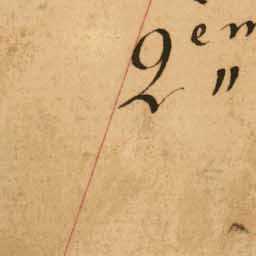 2em
"